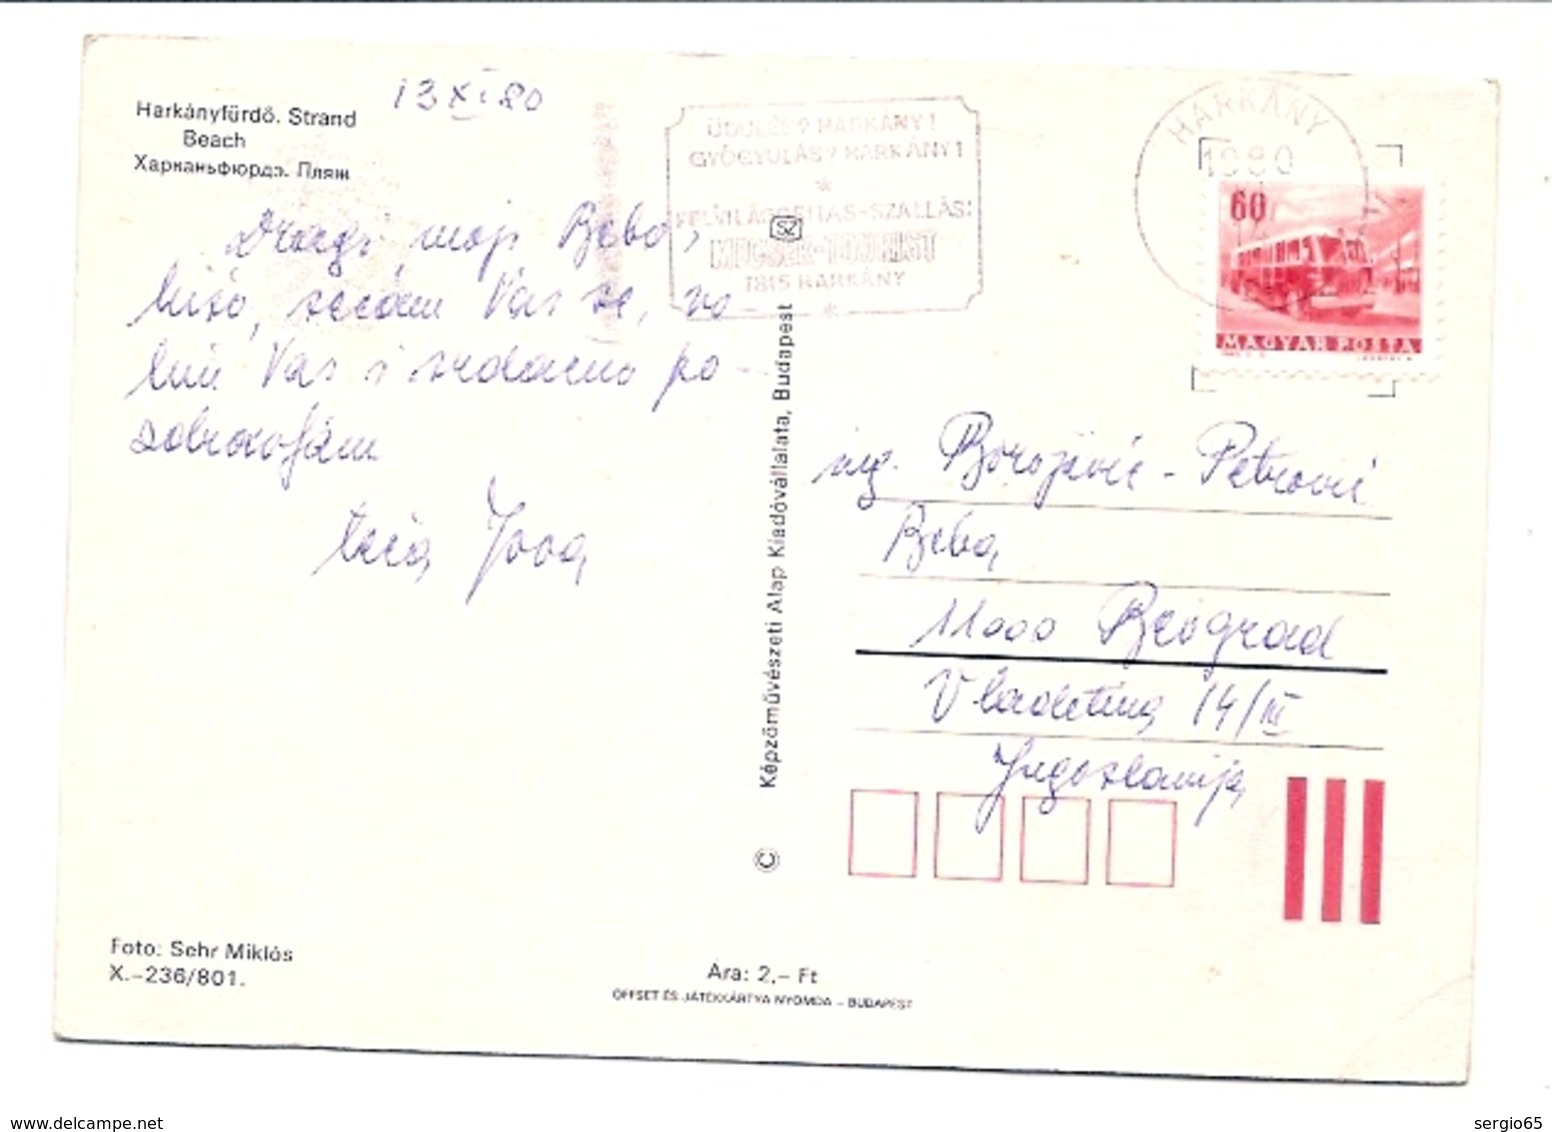 Harkányfürdő. Strand
Beach
Харканьфюрдэ. Пляж
13 XI 80
Dragi moji Bebo,
sećam Vas se, vo-
lim Vas i srdačno po-
zdravljam
teča Jova
ÜDÜLÉS? HARKÁNY!
GYÓGYULÁS? HARKÁNY!
*
FELVILÁGOSÍTÁS-SZÁLLÁS:
MECSEK-TOURIST
7815 HARKÁNY
*
HARKÁNY
1980
60f
MAGYAR POSTA
ing. Borojević - Petrović
Beba
11000 Beograd
Vladetina 14/III
Jugoslavija
© Képzőművészeti Alap Kiadóvállalata, Budapest
Foto: Sehr Miklós
X.-236/801.
Ára: 2,- Ft
OFFSET ÉS JÁTÉKKÁRTYA NYOMDA - BUDAPEST
www.delcampe.net
sergio65